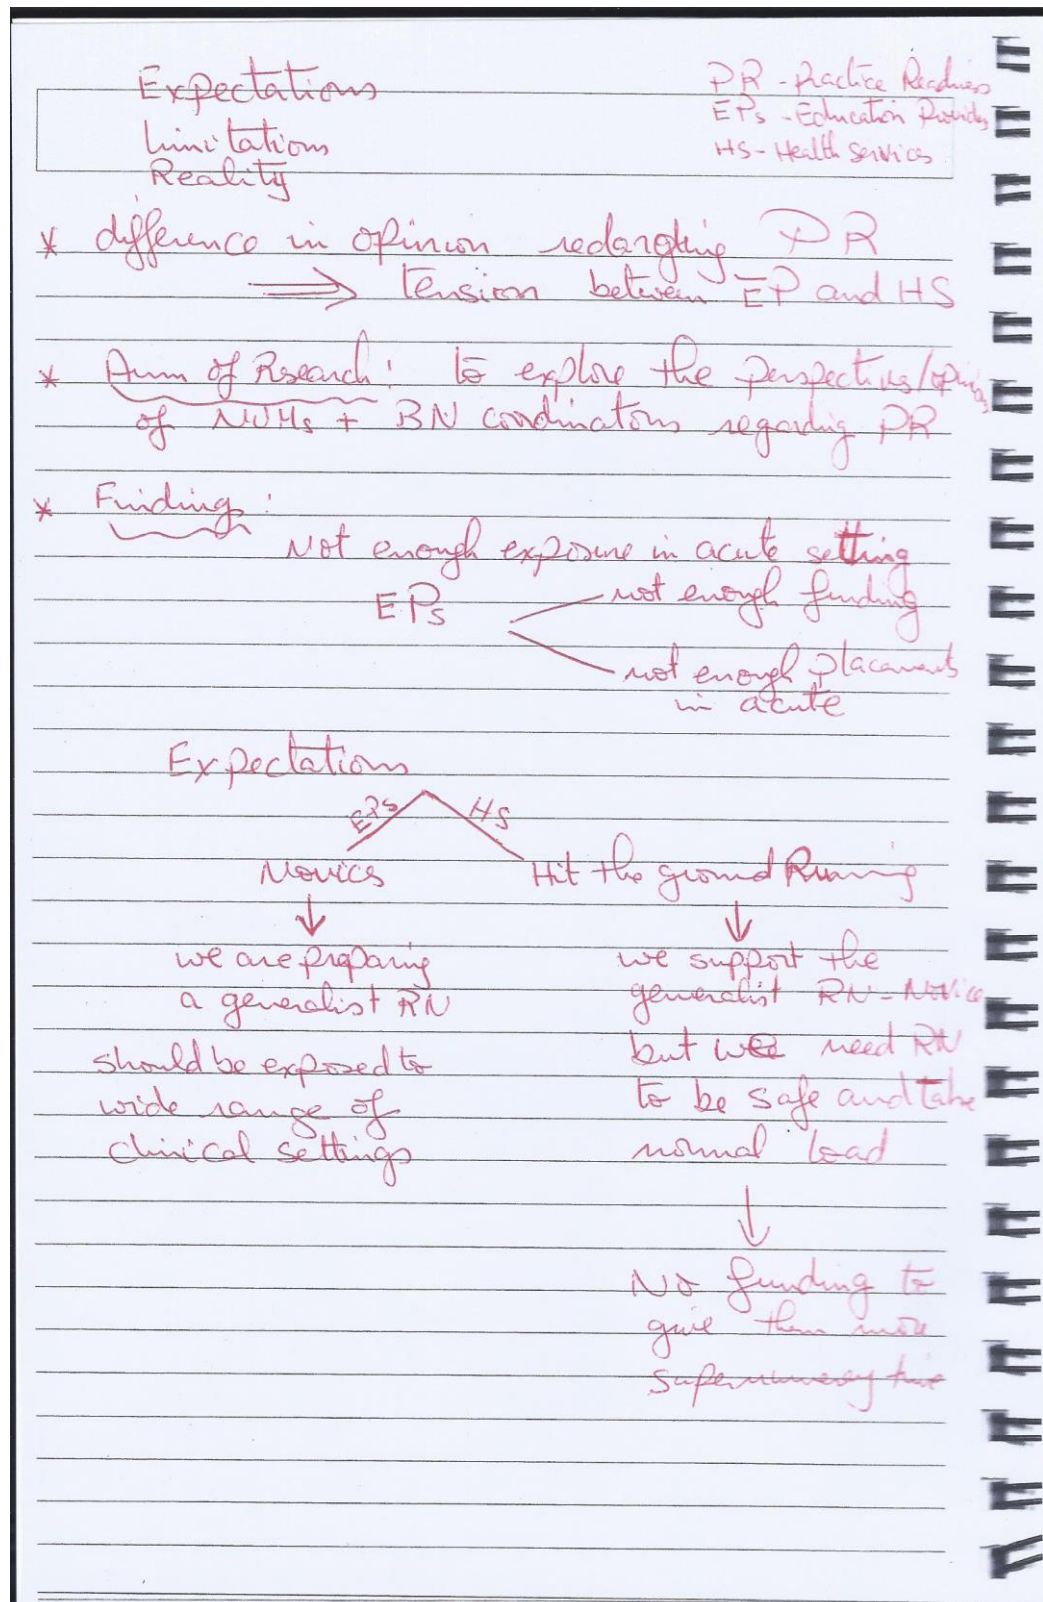 Expectations
Limitations
Reality
PR - Practice Readiness
EPs - Education Providers
HS - Health Services
* difference in opinion redangting PR
⇒ tension between EP and HS
* Aim of Research: to explore the perspectives/opinions
of NUMs + BN coordinators regarding PR
* Findings:
Not enough exposure in acute setting
EPs
not enough funding
not enough placements
in acute
Expectations
EPs HS
Novices
Hit the ground Running
↓ ↓
we are preparing
a generalist RN
should be exposed to
wide range of
clinical settings
we support the
generalist RN - Novice
but we need RN
to be safe and take
normal load
↓
No funding to
give them more
supernumerary time